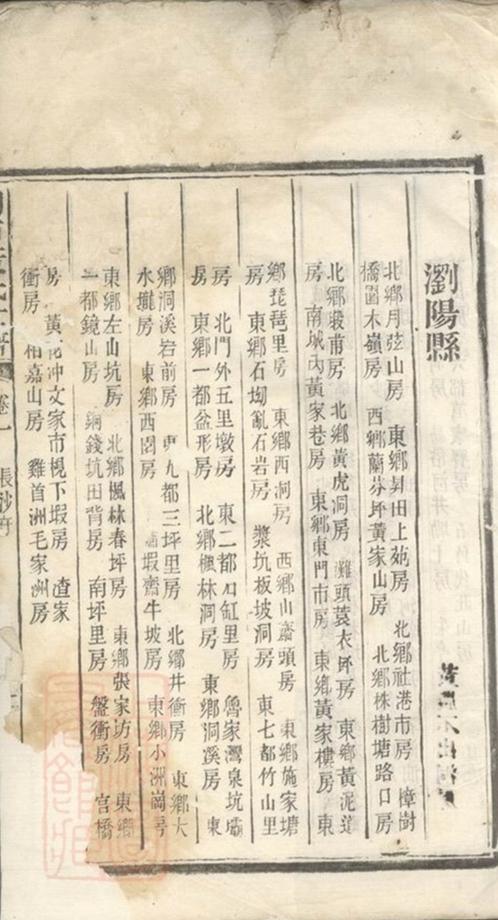 瀏陽縣
北鄉月弦山房　東鄉昇田上苑房　北鄉社港市房　樟樹
橋園木嶺房　西鄉蘭芬坪黃家山房　北鄉株樹塘路口房
北鄉段甫房　北鄉黃虎洞房　灘頭蓑衣坪房　東鄉黃泥
房　南城內黃家巷房　東鄉東門市房　東鄉黃家樓房　東
鄉琵琶里房　東鄉西洞房　西鄉山齋頭房　東鄉施家塘
房　東鄉石坳亂石岩房　漿坑板坡洞房　東七都竹山里
房　北門外五里墩房　東二都缸里房　魯家灣泉坑壩
房　東鄉一都盆形房　北鄉楓林洞房　東鄉洞溪房　東
鄉洞溪岩前房　九都三坪里房　北鄉井衝房　東鄉大
水壠房　東鄉西園房　蝦齋牛坡房　東鄉小洲崗房
東鄉左山坑房　北鄉楓林春坪房　東鄉張家坊房　東鄉
一都鏡山房　銅錢坑田背房　南坪里房　盤衝房　官橋
房　黃花冲文家市梘下塅房　查家
衝房　柏嘉山房　雞首洲毛家洲房
卷一　長沙府